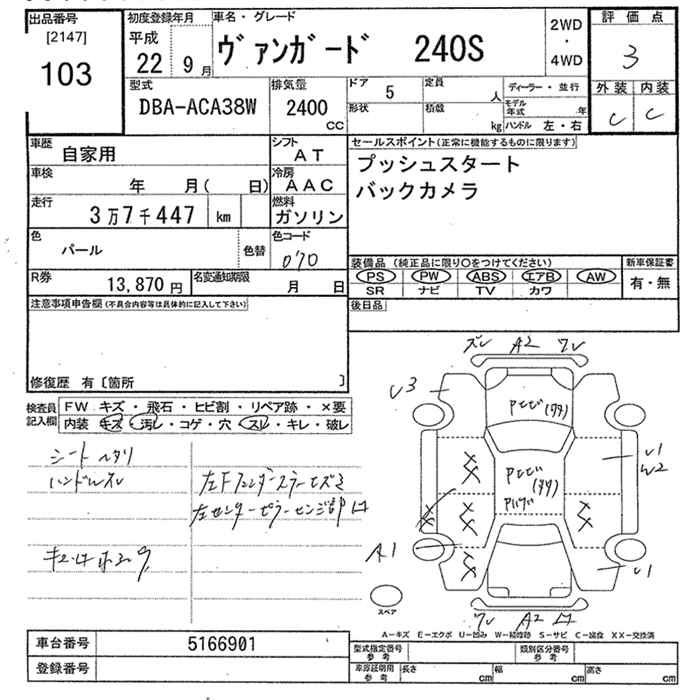 出品番号
[2147]
103
初度登録年月
平成
22年 9月
車名・グレード
ヴァンガード 240S
2WD
・
4WD
評価点
3
外装 内装
C C
型式
DBA-ACA38W
排気量
2400
CC
ドア 5
定員 人
形状
積載 kg
ディーラー・並行
モデル年式 年
ハンドル 左・右
車歴
自家用
シフト
AT
車検
年 月( 日)
冷房
AAC
走行
3万7千447 km
燃料
ガソリン
色
パール
色替
色コード
070
R券
13,870円
名変通知期限
月 日
セールスポイント(正常に機能するものに限ります)
プッシュスタート
バックカメラ
装備品(純正品に限り○をつけてください)
PS PW ABS エアB AW
SR ナビ TV カワ
新車保証書
有・無
後日品
注意事項申告欄(不具合内容等は具体的に記入して下さい)
修復歴 有〔箇所 〕
検査員記入欄
FW キズ・飛石・ヒビ割・リペア跡・×要
内装 キズ・汚レ・コゲ・穴・スレ・キレ・破レ
シートヘタリ
ハンドルスレ
ズレ A2 ワレ
U3
U1
W2
A1
U1
ワレ A2
スペア
A-キズ E-エクボ U-凹み W-補修跡 S-サビ C-腐食 XX-交換済
車台番号
5166901
登録番号
型式指定番号
参考
類別区分番号
参考
車庫証明用
参考
長さ cm
幅 cm
高さ cm